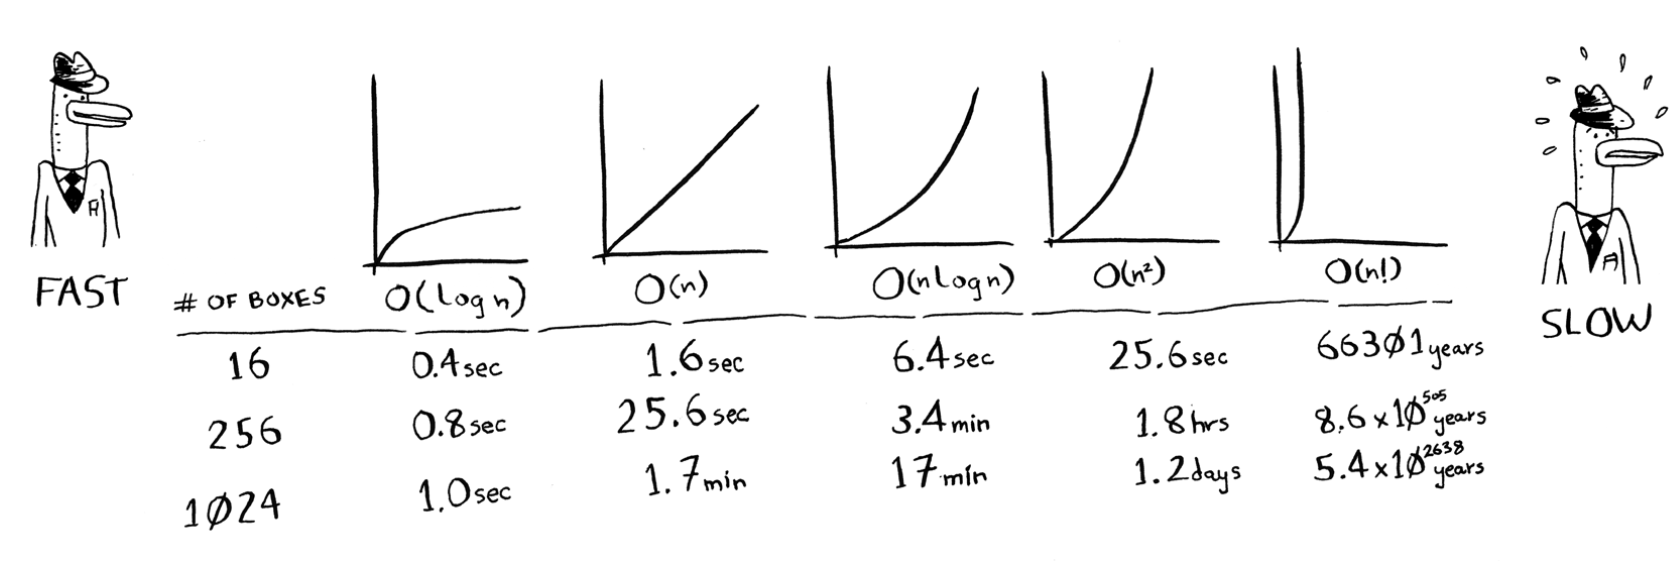 FAST
# OF BOXES O(log n) O(n) O(n log n) O(n²) O(n!)
SLOW
16 0.4sec 1.6sec 6.4sec 25.6sec 663Ø1years
256 0.8sec 25.6sec 3.4min 1.8hrs 8.6x1Ø⁵⁰⁵years
1Ø24 1.0sec 1.7min 17min 1.2days 5.4x1Ø²⁶³⁸years
A
A